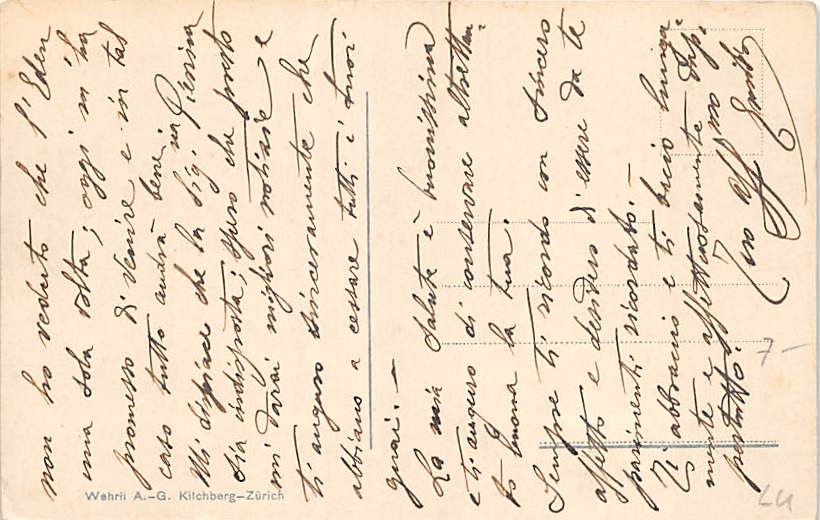 non ho veduto che l'Eden
una sola volta; oggi m'ha
promesso di venire e in tal
caso tutto andrà bene
Mi dispiace che la Sig.na Pierina
sia indisposta; spero che presto
mi darai migliori notizie e
ti auguro sinceramente che
abbiano a cessare tutti i tuoi
guai. —
La mia salute è buonissima
e ti auguro di conservare altrettan-
to buona la tua.
Sempre ti ricordo con sincero
affetto e desidero d'essere da te
parimenti ricordato. —
Ti abbraccio e ti bacio lunga-
mente e affettuosamente dap-
pertutto.
Tuo aff.mo
7 —
LU
Wehrli A.-G. Kilchberg-Zürich